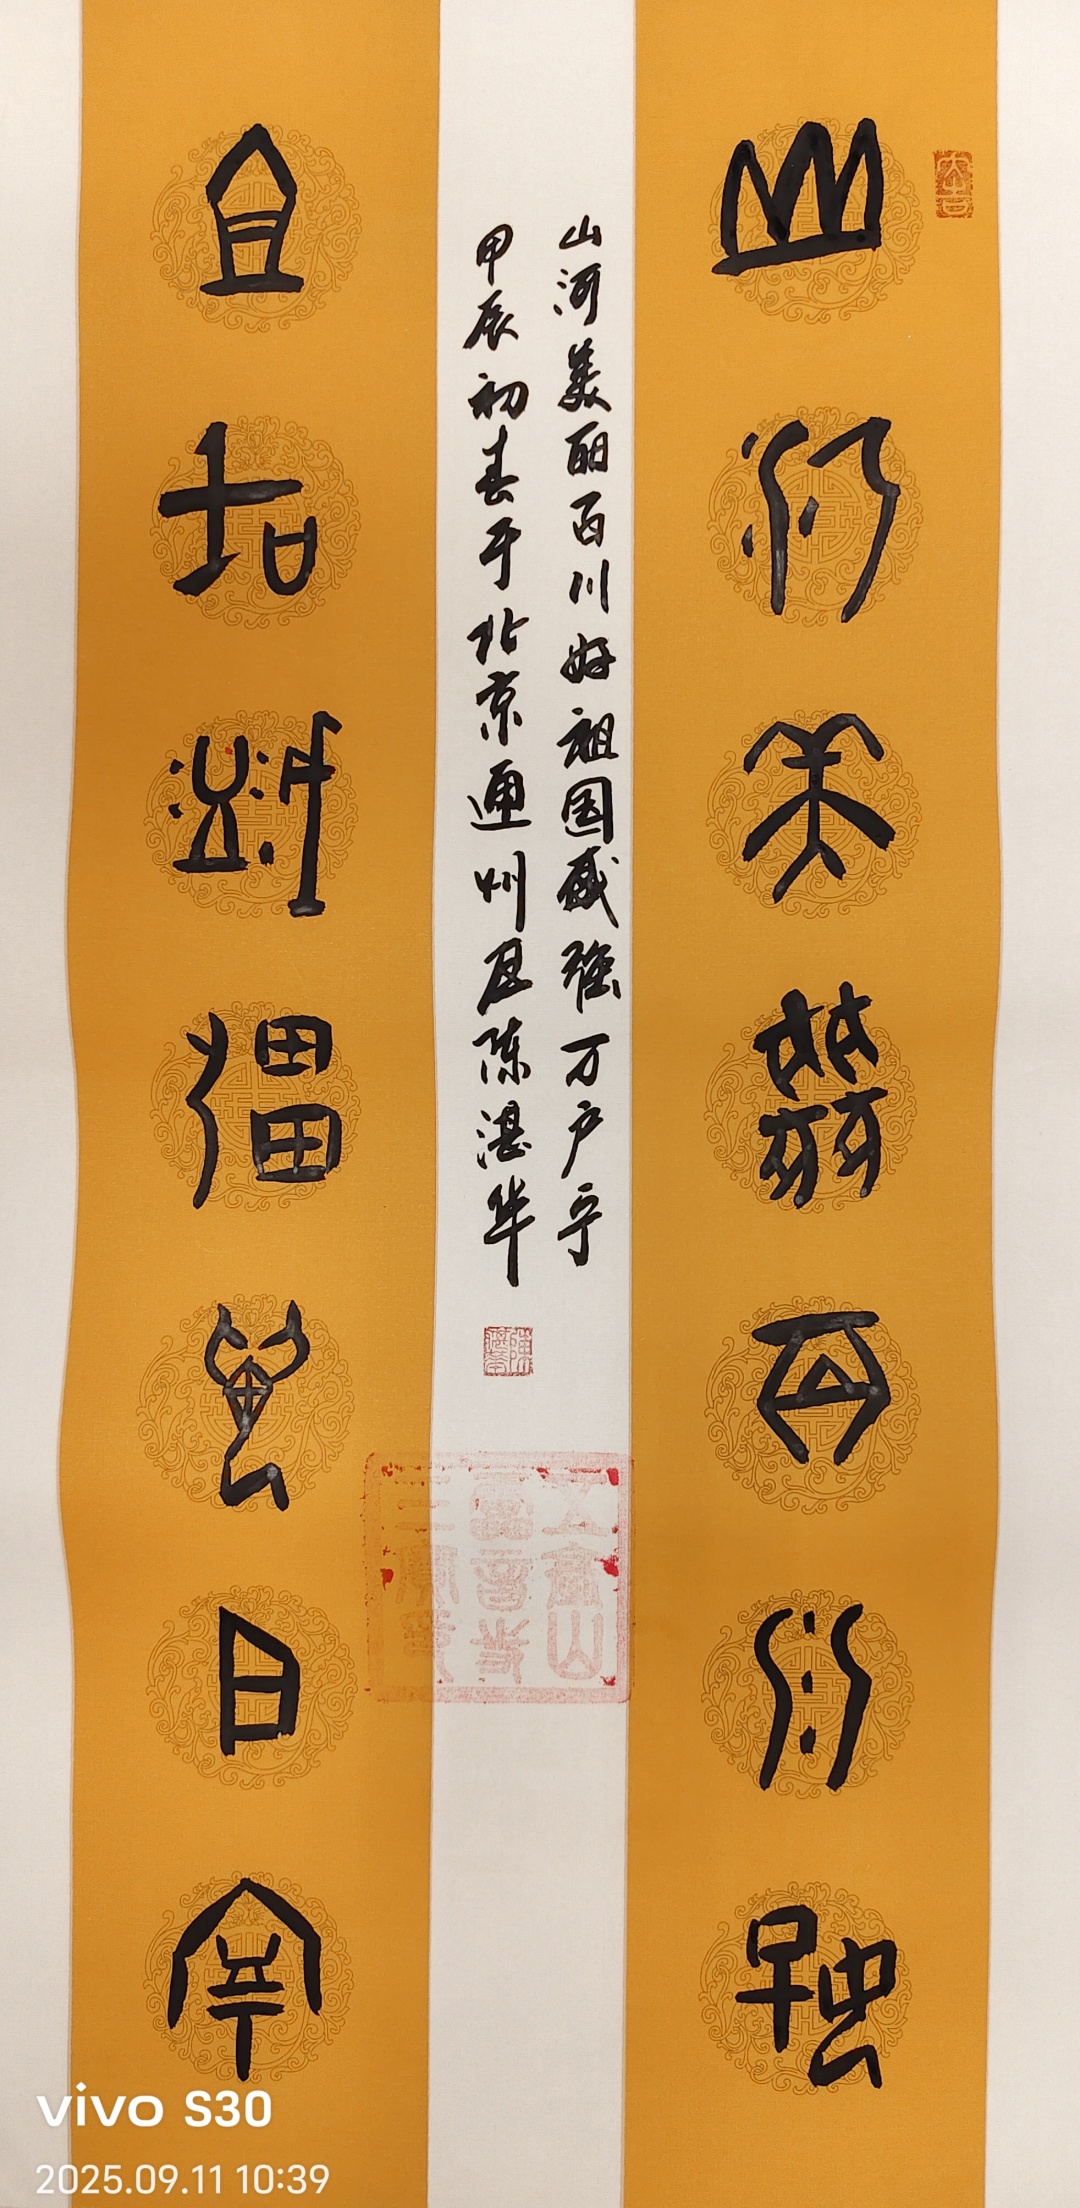 山河美丽百川好
祖国盛强万户宁
山河美丽百川好祖国盛强万户宁
甲辰初春于北京通州区陈湛华
大吉
vivo S30
2025.09.11 10:39